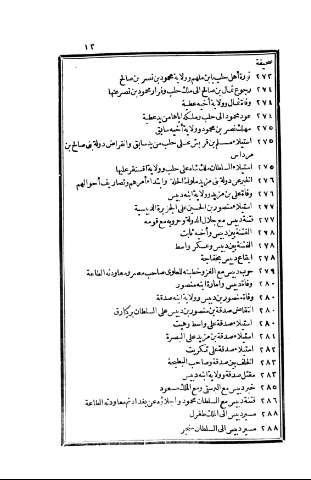 ١٣
صحيفة
٢٧٣ ثورة أهل حلب بابن ملهم وولاية محمود بن نصر بن صالح
٢٧٤ رجوع ثمال بن صالح الى ملك حلب وفرار محمود بن نصر عنها
٢٧٤ وفاة ثمال وولاية أخيه عطية
٢٧٤ عود محمود الى حلب وملكه اياها من يد عطية
٢٧٥ مهلك نصر بن محمود وولاية أخيه سابق
٢٧٥ استيلاء مسلم بن قريش على حلب من يد سابق وانقراض دولة بنى صالح بن
مرداس
٢٧٥ استيلاء السلطان ملك شاه على حلب وولاية اقسنقر عليها
٢٧٦ الخبر عن دولة بنى مزيد ملوك الحلة وابتداء أمرهم وتصاريف أحوالهم
٢٧٦ وفاة على بن مزيد وولاية ابنه دبيس
٢٧٧ استيلاء منصور بن الحسين على الجزيرة الدبيسية
٢٧٧ فتنة دبيس مع جلال الدولة وحروبه مع قومه
٢٧٨ الفتنة بين دبيس وأخيه ثابت
٢٧٨ الفتنة بين دبيس وعسكر واسط
٢٧٨ ايقاع دبيس بخفاجة
٢٧٩ حرب دبيس مع الغز وخطبته للعلوى صاحب مصر ومعاودته الطاعة
٢٨٠ وفاة دبيس وامارة ابنه منصور
٢٨٠ وفاة منصور بن دبيس وولاية ابنه صدقة
٢٨٠ انتقاض صدقة بن منصور بن دبيس على السلطان بركيارق
٢٨٠ استيلاء صدقة على واسط وهيت
٢٨١ استيلاء صدقة بن مزيد على البصرة
٢٨٢ استيلاء صدقة على تكريت
٢٨٢ الخلف بين صدقة وصاحب البطيحة
٢٨٣ مقتل صدقة وولاية ابنه دبيس
٢٨٥ خبر دبيس مع البرسقى ومع الملك مسعود
٢٨٦ فتنة دبيس مع السلطان محمود واجلاؤه عن بغداد ثم معاودته الطاعة
٢٨٨ مسير دبيس الى الملك طغرل
٢٨٨ مسير دبيس الى السلطان سنجر